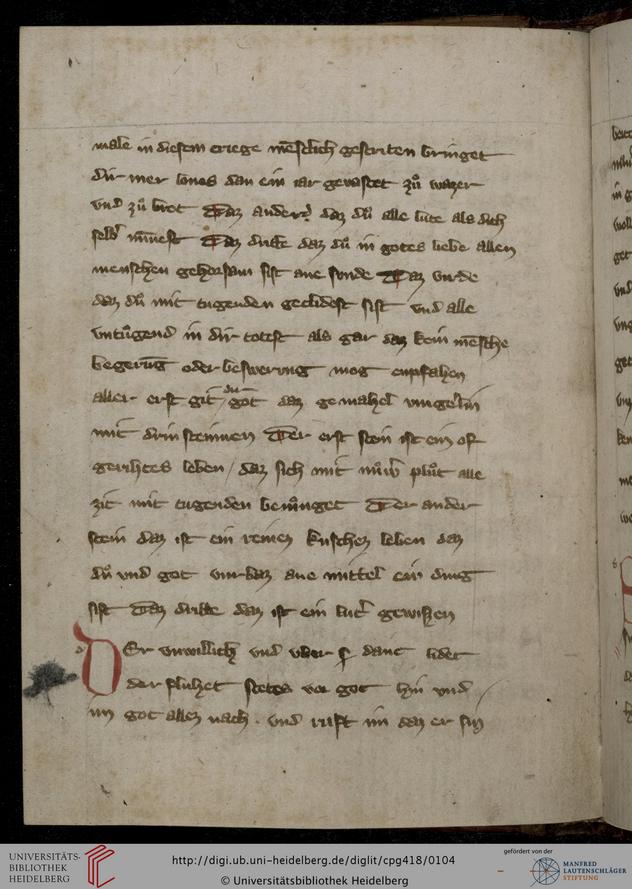 male in diesem criege mēschlich gestriten bringet
dir mer lones dan ein iar gevastet zů wazzer
vnd zů brot Daz ander daz dů alle lute als dich
selb minnest Daz dritte daz dů in gotes liebe allen
menschen gehorsam sist ane sunde Daz virde
daz dů mit tugenden gecleidest sist vnd alle
vntůgend in dir totest als gar daz kein mēsche
begerūg oder beswerung mog enpfahen
aller erst git dir got daz gemahel vingerlin
mit drin steinnen Der erst stein ist ein of
gerihtes leben / daz sich mit nůwer plůt alle
zit mit tugenden benůnget Der ander
stein daz ist ein reines kuschez leben daz
dů vnd got vmbaz ane mittel ein ding
sist Daz dritte daz ist ein luter gewissen
DEr vnwillich vnd vber danc lidet
der fluhet stetes vor got hin vnd
im got allez nach . vnd ruft im daz er sin
UNIVERSITÄTS-
BIBLIOTHEK
HEIDELBERG
http://digi.ub.uni-heidelberg.de/diglit/cpg418/0104
© Universitätsbibliothek Heidelberg
gefördert von der
MANFRED
LAUTENSCHLÄGER
STIFTUNG